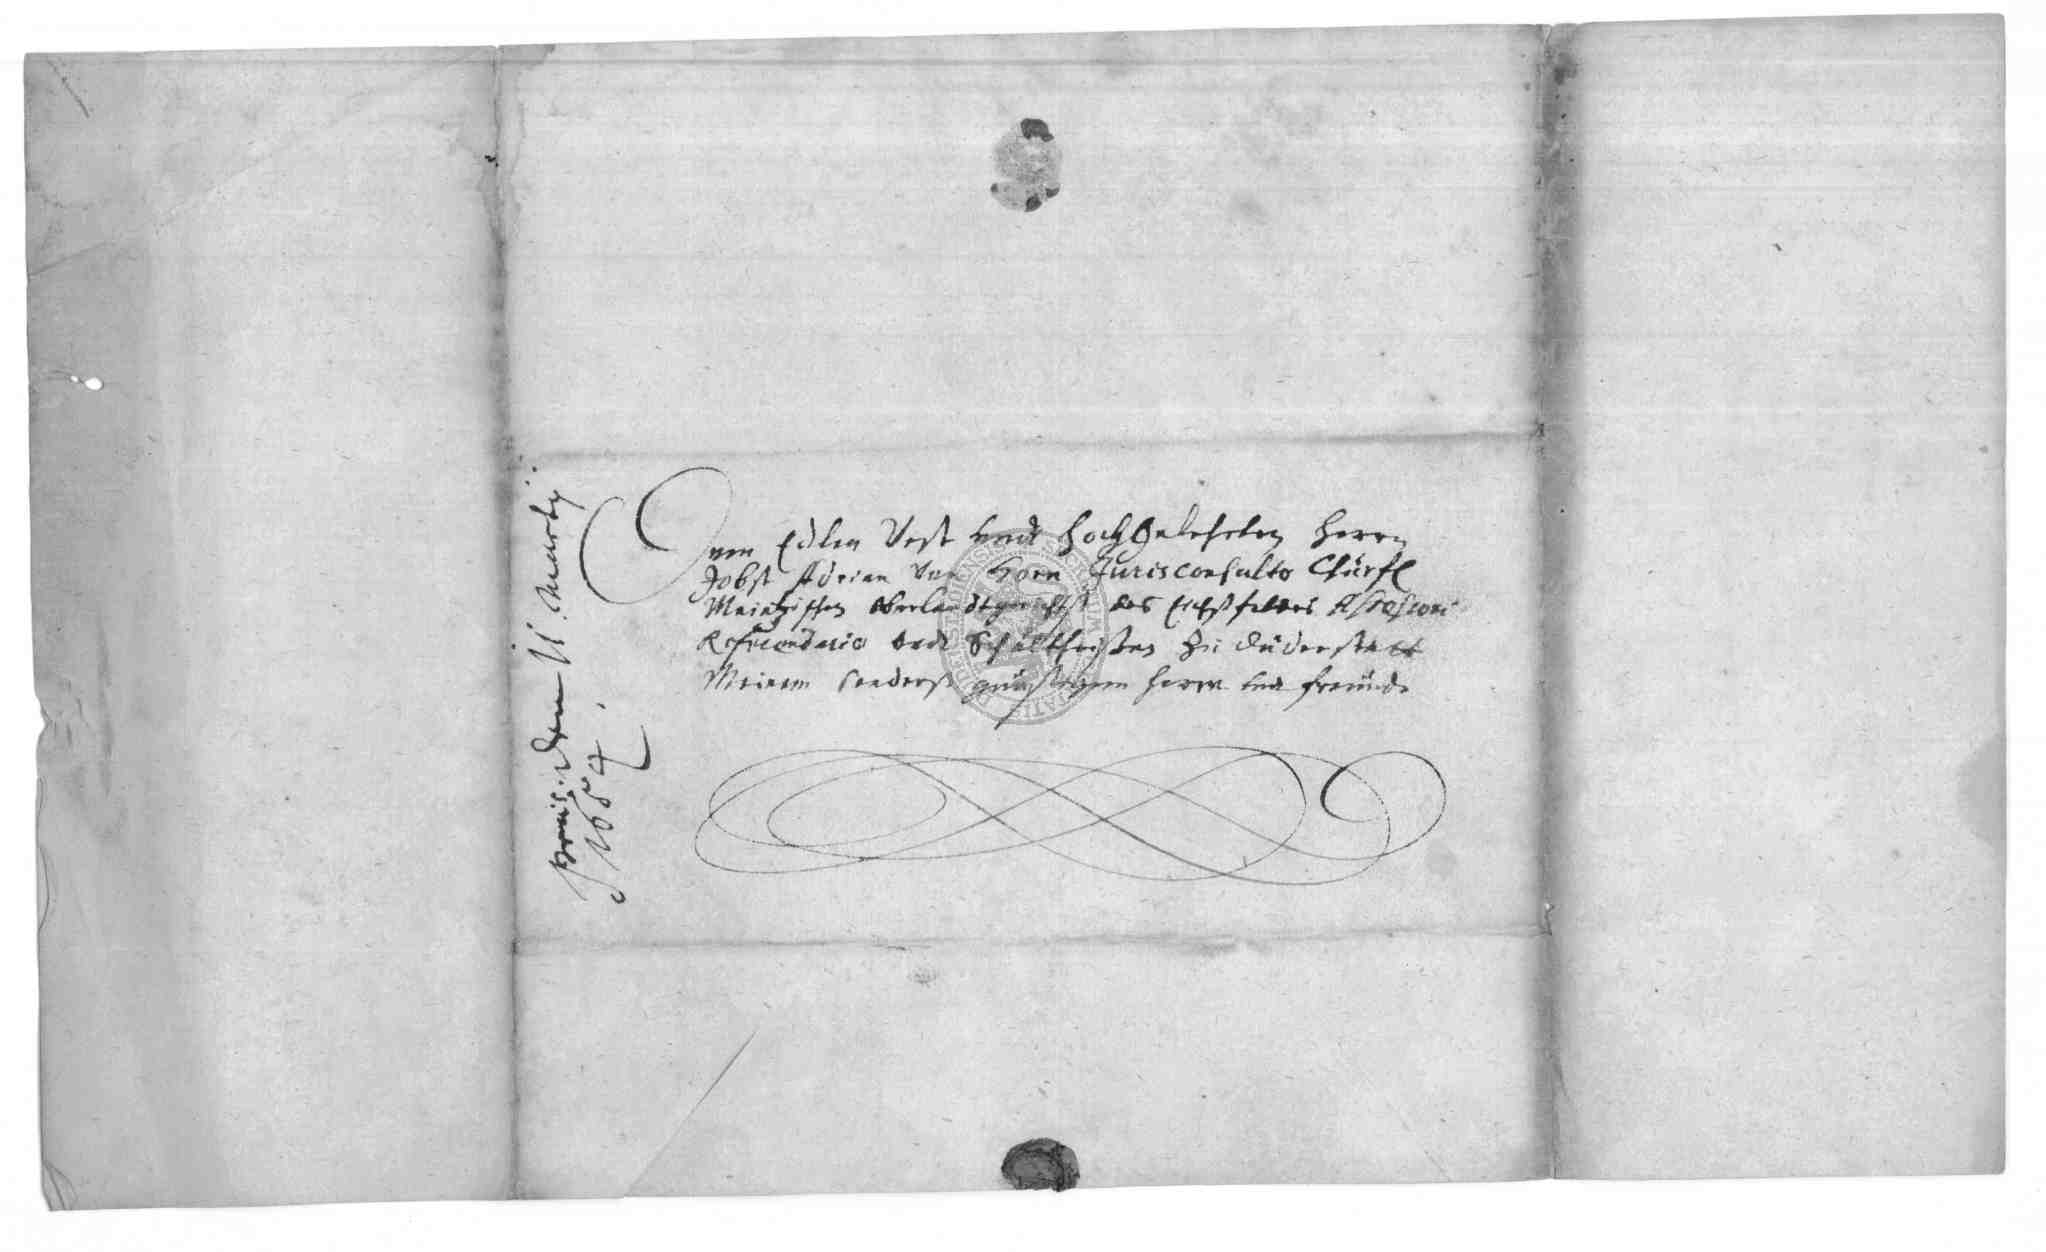 Dem Edlen Vest vndt Hochgelehrten Herrn
Jobst Adrian von Horn Jurisconsulto Churfl
Maintzischen Oberlandtgerichts des Eichsfeldes Assessori
vndt Schultheissen zu Duderstatt
Meinem sonders günstigem Herrn vnd freunde
den 11 Marty